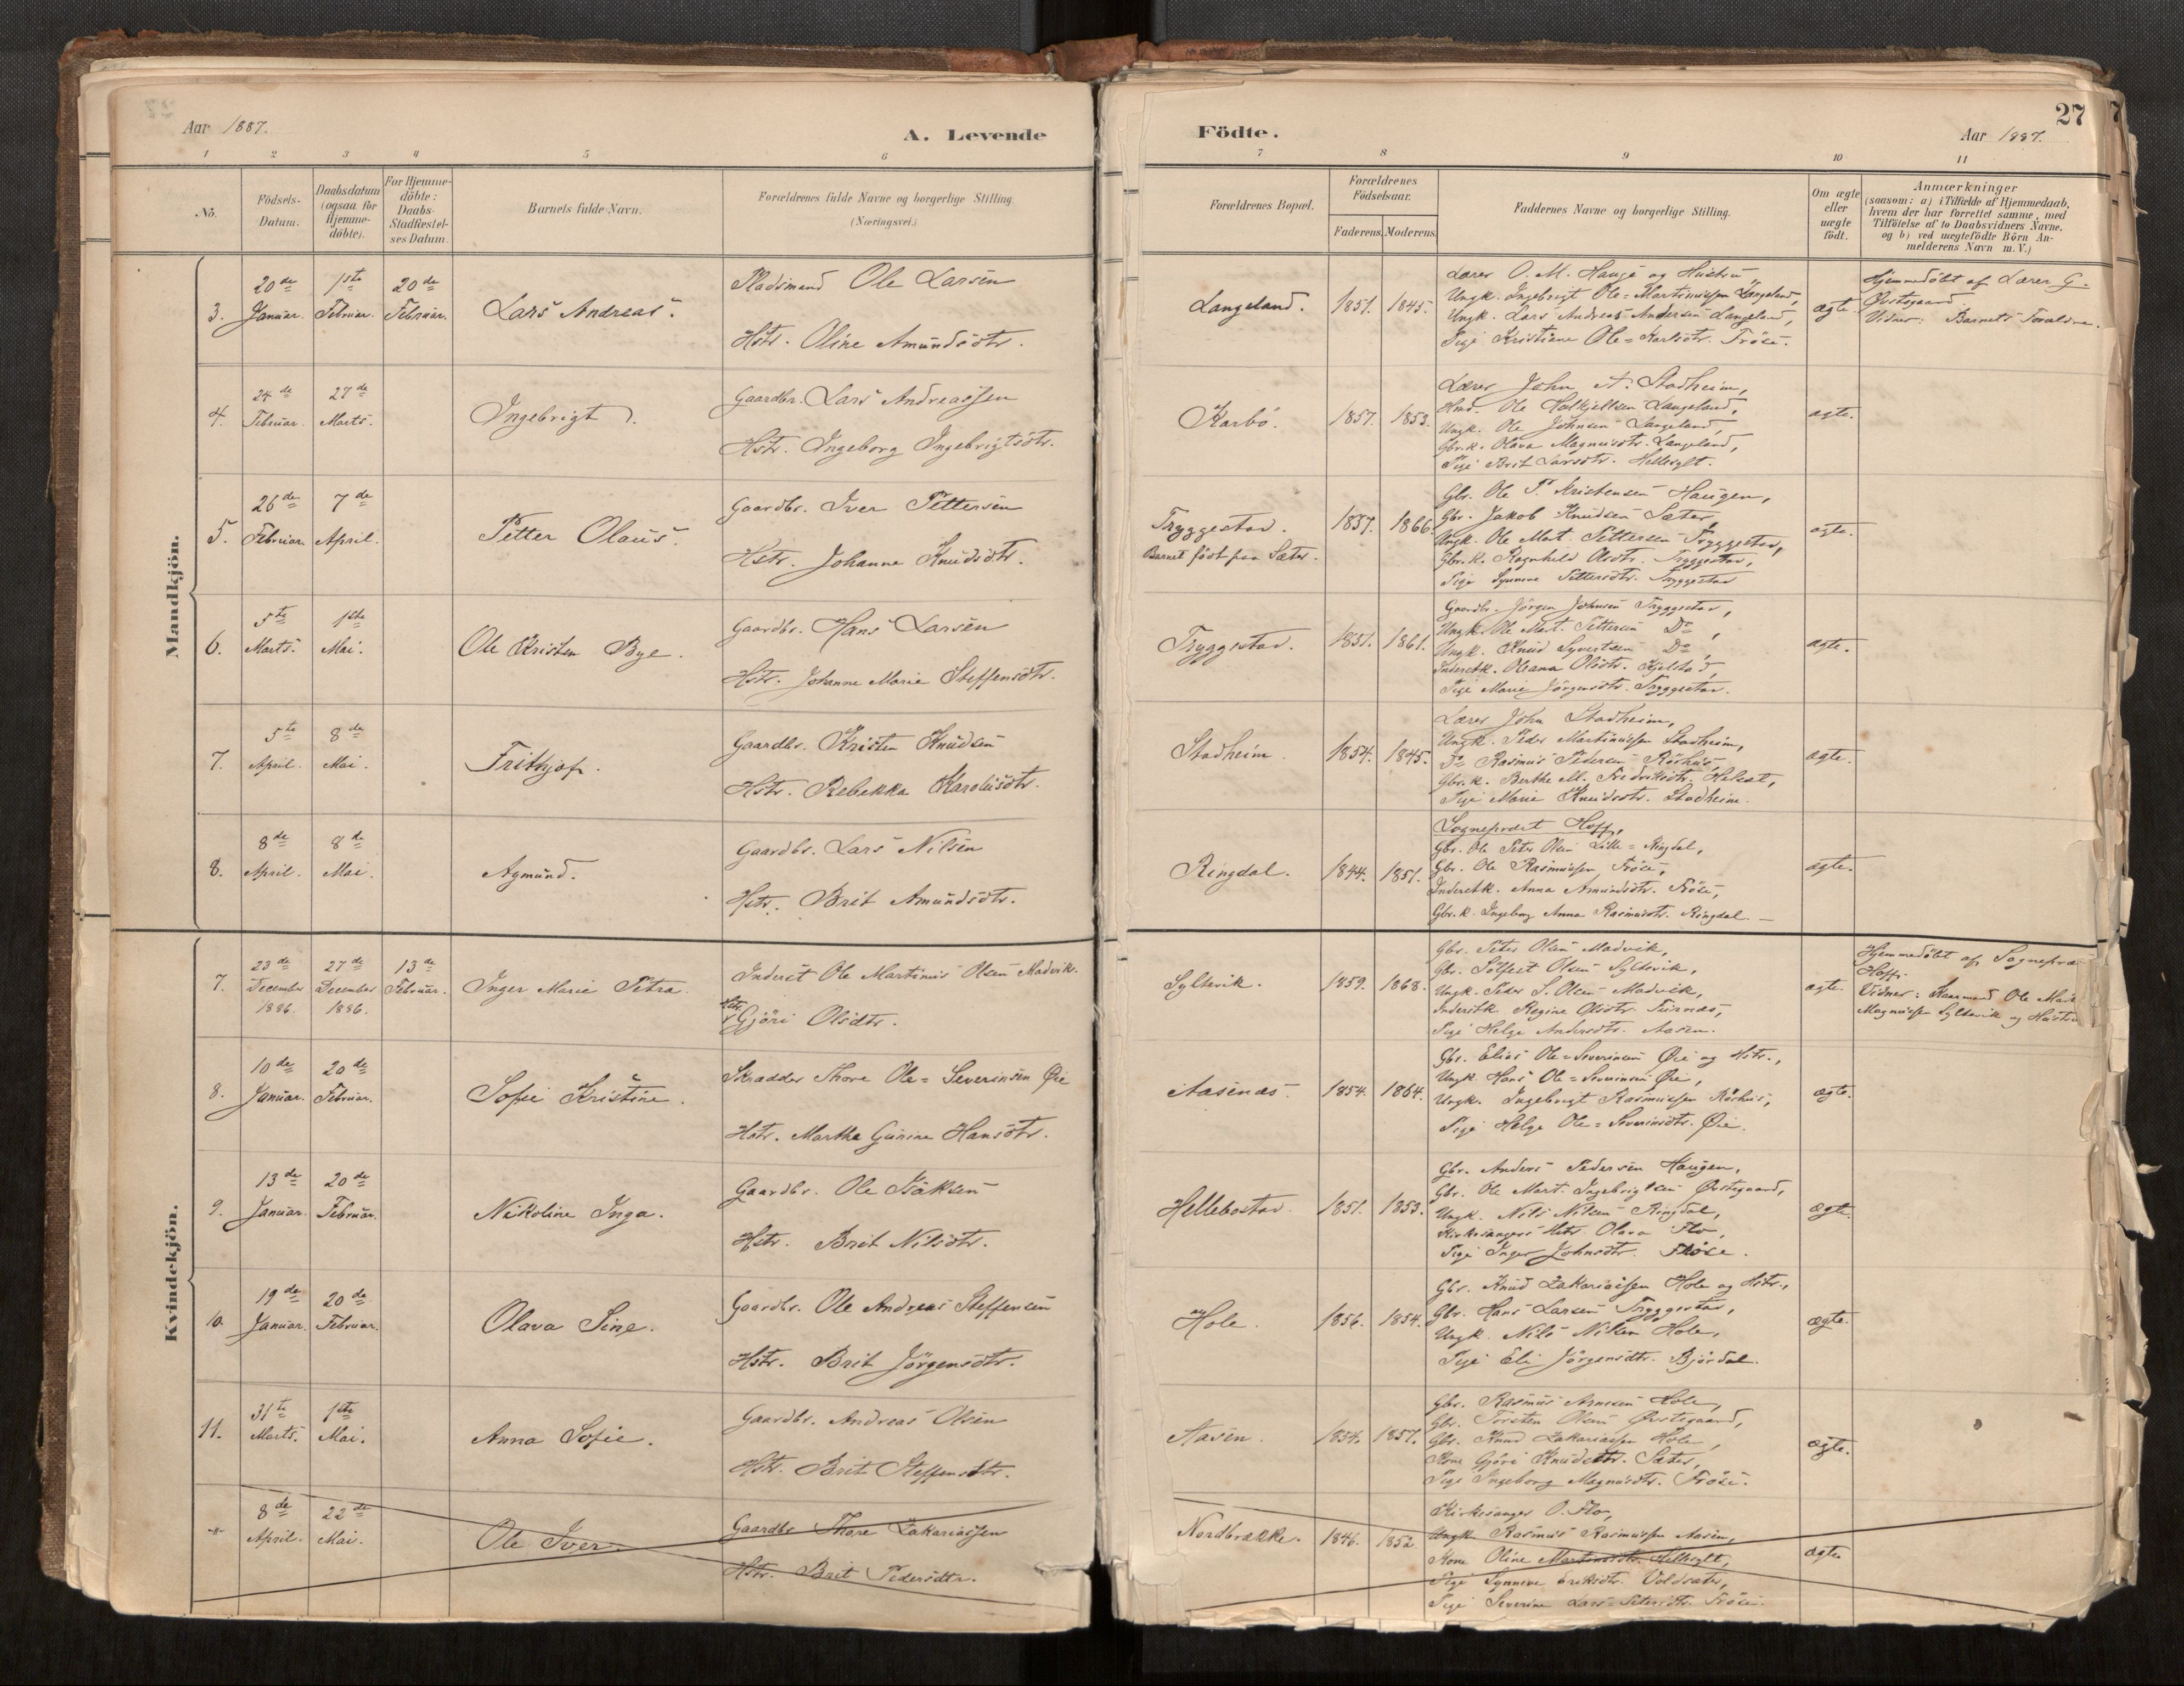 Aar 1887.
A. Levende
1 2 3 4 5 6
No.
Födsels-
Datum.
Daabsdatum
(ogsaa for
Hjemme-
döbte).
For Hjemme-
döbte:
Daabs-
Stadfæstel-
ses Datum.
Barnets fulde Navn.
Forældrenes fulde Navne og borgerlige Stilling.
(Næringsvei.)
Mandkjön.
3.
20de
Januar.
1ste
Februar.
20de
Februar.
Lars Andreas.
Pladsmand Ole Larsen
Hstr. Oline Amundsdtr.
4.
24de
Februar.
27de
Marts.
Ingebrigt.
Gaardbr. Lars Andreassen
Hstr. Ingeborg Ingebrigtsdtr.
5.
26de
Februar.
7de
April.
Petter Olaus.
Gaardbr. Iver Pettersen
Hstr. Johanne Knudsdtr.
6.
5te
Marts.
1ste
Mai.
Ole Kristen Bye.
Gaardbr. Hans Larsen
Hstr. Johanne Marie Steffensdtr.
7.
5te
April.
8de
Mai.
Frithjof.
Gaardbr. Kristen Knudsen
Hstr. Rebekka Karolusdtr.
8.
8de
April.
8de
Mai.
Agmund.
Gaardbr. Lars Nilsen
Hstr. Brit Amundsdtr.
Kvindekjön.
7.
23de
December
1886.
27de
December
1886.
13de
Februar.
Inger Marie Petra.
Inderst Ole Martinus Olsen Madvik.
Hstr. Gjöri Olsdtr.
8.
10de
Januar.
20de
Februar.
Sofie Kristine.
Skradder Thore Ole=Severinsen Øie
Hstr. Marthe Gurine Hansdtr.
9.
13de
Januar.
20de
Februar.
Nikoline Inga.
Gaardbr. Ole Isaksen
Hstr. Brit Nilsdtr.
10.
19de
Januar.
20de
Februar.
Olava Sine.
Gaardbr. Ole Andreas Steffensen
Hstr. Brit Jörgensdtr.
11.
31te
Marts.
1ste
Mai.
Anna Sofie.
Gaardbr. Andreas Olsen
Hstr. Brit Steffensdtr.
"
8de
April.
22de
Mai.
Ole Iver.
Gaardbr. Thore Zakariassen
Hstr. Brit Pedersdtr.
27
Födte.
Aar 1887.
7 8 9 10 11
Forældrenes Bopæl.
Forældrenes
Födselsaar.
Faderens. Moderens.
Faddernes Navne og borgerlige Stilling.
Om ægte
eller
uægte
födt.
Anmærkninger
(saasom: a) i Tilfælde af Hjemmedaab,
hvem der har forrettet samme, med
Tilföielse af to Daabsvidners Navne.
og b) ved uægtefödte Börn An-
melderens Navn m.V.)
Langeland. 1851. 1845.
Lærer O. M. Hauge og Hustru,
Ungk. Ingebrigt Ole=Martinussen Langeland,
Ungk. Lars Andreas Andersen Langeland,
Pige Kristiane Ole=Larsdtr. Tröse.
ægte.
Hjemmedöbt af Lærer G.
Østegaard.
Vidner: Barnets Forældre.
Karbö. 1857. 1853.
Lærer John A. Stadheim,
Ole Langeland,
Ungk. Ole Johnsen Langeland,
Gbr.k. Olava Magnusdtr. Langeland,
Pige Brit Larsdtr. Hellesylt.
ægte.
Tryggestad.
Barnet födt paa Sæter.
1857. 1866.
Gbr. Ole P. Kristensen Haugen,
Gbr. Jakob Knudsen Sæter
Ungk. Ole Mart. Pettersen Tryggestad,
Gbr.k. Ragnhild Olsdtr. Tryggestad,
Pige Synneve Pettersdtr. Tryggestad
ægte.
Tryggestad. 1851. 1861.
Gaardbr. Jörgen Johnsen Tryggestad,
Ungk. Ole Mart. Pettersen Do,
Ungk. Knud Syvertsen Do
Inderstk. Oleana Olsdtr.
Pige Marie Jörgensdtr. Tryggestad.
ægte.
Stadheim 1854. 1845.
Lærer John Stadheim,
Ungk. Peder Martinussen Stadheim,
Do Rasmus Pedersen Röshus,
Gbr.k. Berthe M. Fredriksdtr. Helset,
Pige Marie Knudsdtr. Stadheim.
ægte.
Ringdal. 1844. 1851.
Sogneprest Hoff,
Gbr. Ole Peter Olsen Lille=Ringdal,
Gbr. Ole Rasmussen Tröse,
Inderstk. Anna Amundsdtr. Tröse,
Gbr.k. Ingeborg Anna Rasmusdtr. Ringdal.
ægte.
Syltevik. 1859. 1868.
Gbr. Peter Olsen Madvik,
Gbr. Sölfest Olsen Syltevik,
Ungk. Peder S. Olsen Madvik,
Inderstk. Regine Olsdtr. Furnæs,
Pige Helge Andersdtr. Aasen.
ægte.
Hjemmedöbt af Sognepræ
Hoff.
Vidner: Ole Mart.
Magnussen Syltevik og Hustru
Aasenæs. 1854. 1864.
Gbr. Elias Ole=Severinsen Øie og Hstr.,
Ungk. Hans Ole=Severinsen Øie,
Ungk. Ingebrigt Rasmussen Röshus,
Pige Helge Ole=Severinsdtr. Øie.
ægte.
Hellebostad. 1851. 1853.
Gbr. Anders Pedersen Haugen,
Gbr. Ole Mart. Ingebrigtsen Østegaard,
Ungk. Nils Nilsen Ringdal,
Kirkesangers Hstr. Olava Flo,
Pige Inger Johnsdtr. Tröse.
ægte.
Hole. 1856. 1854.
Gbr. Knud Zakariassen Hole og Hstr.,
Gbr. Hans Larsen Tryggestad,
Ungk. Nils Nilsen Hole,
Pige Eli Jörgensdtr. Björdal.
ægte.
Aasen. 1854. 1857.
Gbr. Rasmus Arnesen Hole,
Gbr. Torsten Olsen Østegaard,
Gbr. Knud Zakariassen Hole,
Kone Gjöri Knudsdtr. Sæter,
Pige Ingeborg Magnusdtr. Tröse.
ægte.
Nordbrække. 1846. 1852.
Kirkesanger O. Flo,
Ungk. Rasmus Rasmussen Aasen,
Kone Oline Martinusdtr. Hellesylt,
Pige Synneve Eriksdtr. Voldsæter,
Pige Severine Lars=Petersdtr. Tröse.
ægte